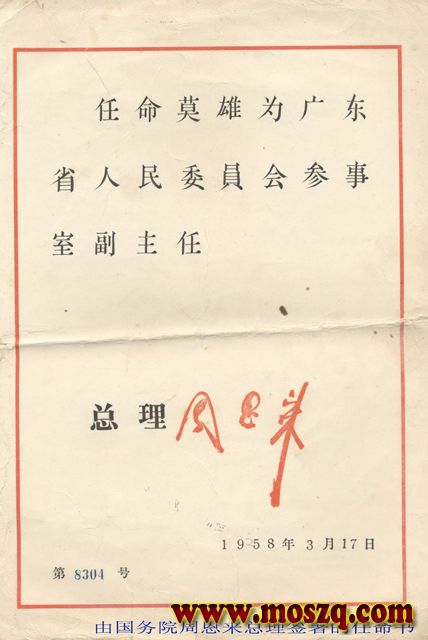 任命莫雄为广东
省人民委員会参事
室副主任
总理 周恩来
1958年3月17日
第 8304 号
www.moszq.com
由国务院周恩来总理签署的任命书